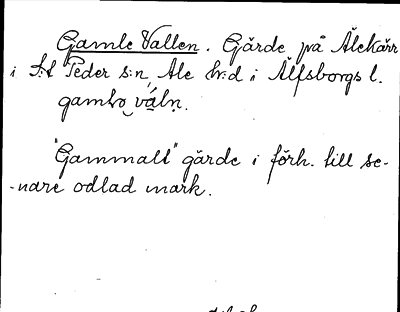 Gamle Vallen. Gärde på Älekärr
i S:t Peder s:n, Ale h:d i Älfsborgs l.
gamlo váln.
"Gammalt" gärde i förh. till se-
-nare odlad mark.